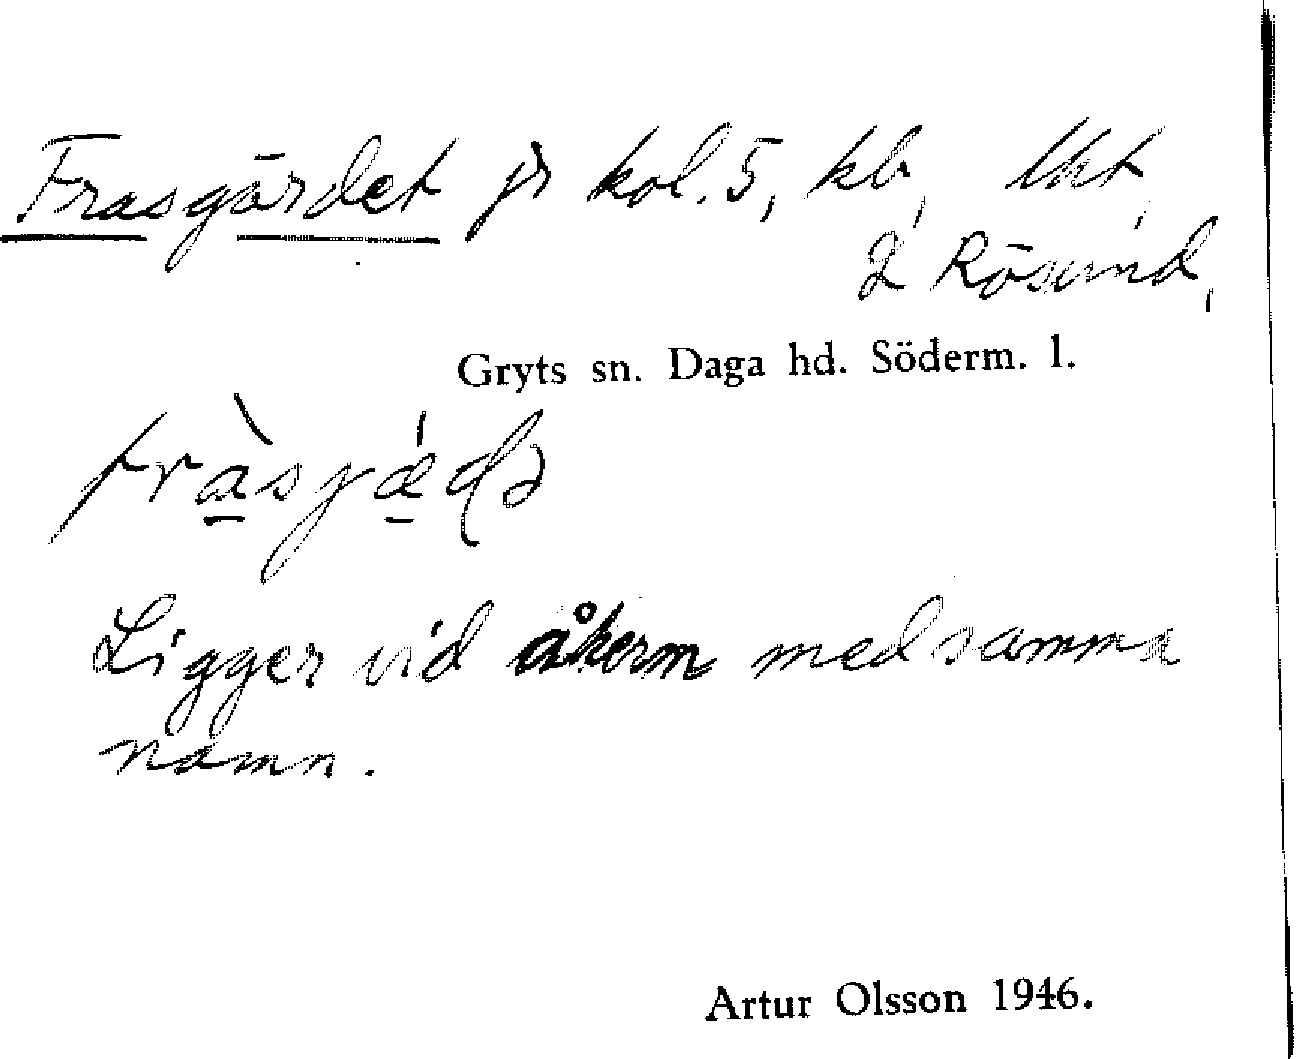 Frasgärdet fr kol. 5, kb,
2 Rösund,
Gryts sn. Daga hd. Söderm. l.
Ligger vid åkern med samma
namn.
Artur Olsson 1946.